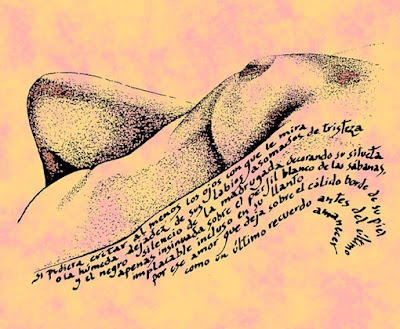 si pudiera al menos los ojos con que le mira
o la húmeda dejadez de sus labios asomados de tristeza
y el negro silencio de la madrugada su silueta
apenas insinuada sobre el blanco de las sábanas,
implacable incluso en su llanto
por ese amor que deja sobre el cálido borde de su piel
como un último recuerdo antes del último
amanecer